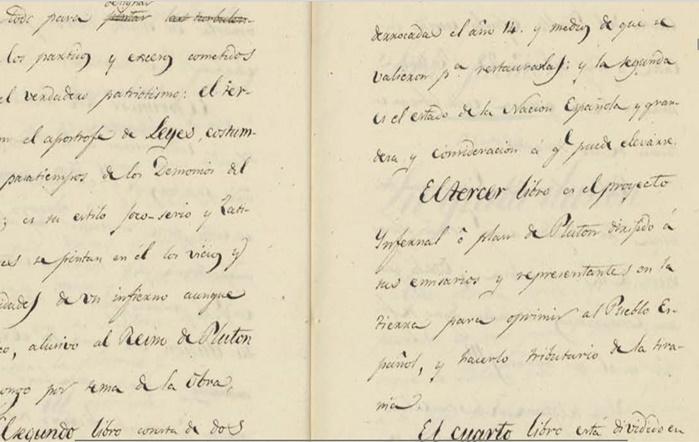 para designar pintar las turbulen-
los partidos y excesos cometidos
el verdadero patriotismo: el ter-
el apostrofe de Leyes, costum-
pasatiempos de los Demonios del
; es su estilo joco-serio y sati-
se pintan en el los vicios y
de un infierno aunque
, alusivo al Reino de Pluton
por tema de la obra.
segundo libro consta de dos
derrocada el año 14. y medios de que se
valieron pª restaurarla; y la segunda
es el estado de la Nacion Española y gran-
deza y consideracion á q.e puede elevarse.
El tercer libro es el proyecto
Infernal ô plan de Pluton dirijido á
sus emisarios y representantes en la
tierra para oprimir al Pueblo Es-
pañol, y hacerlo tributario de la tira-
nia.
El cuarto libro está dividido en